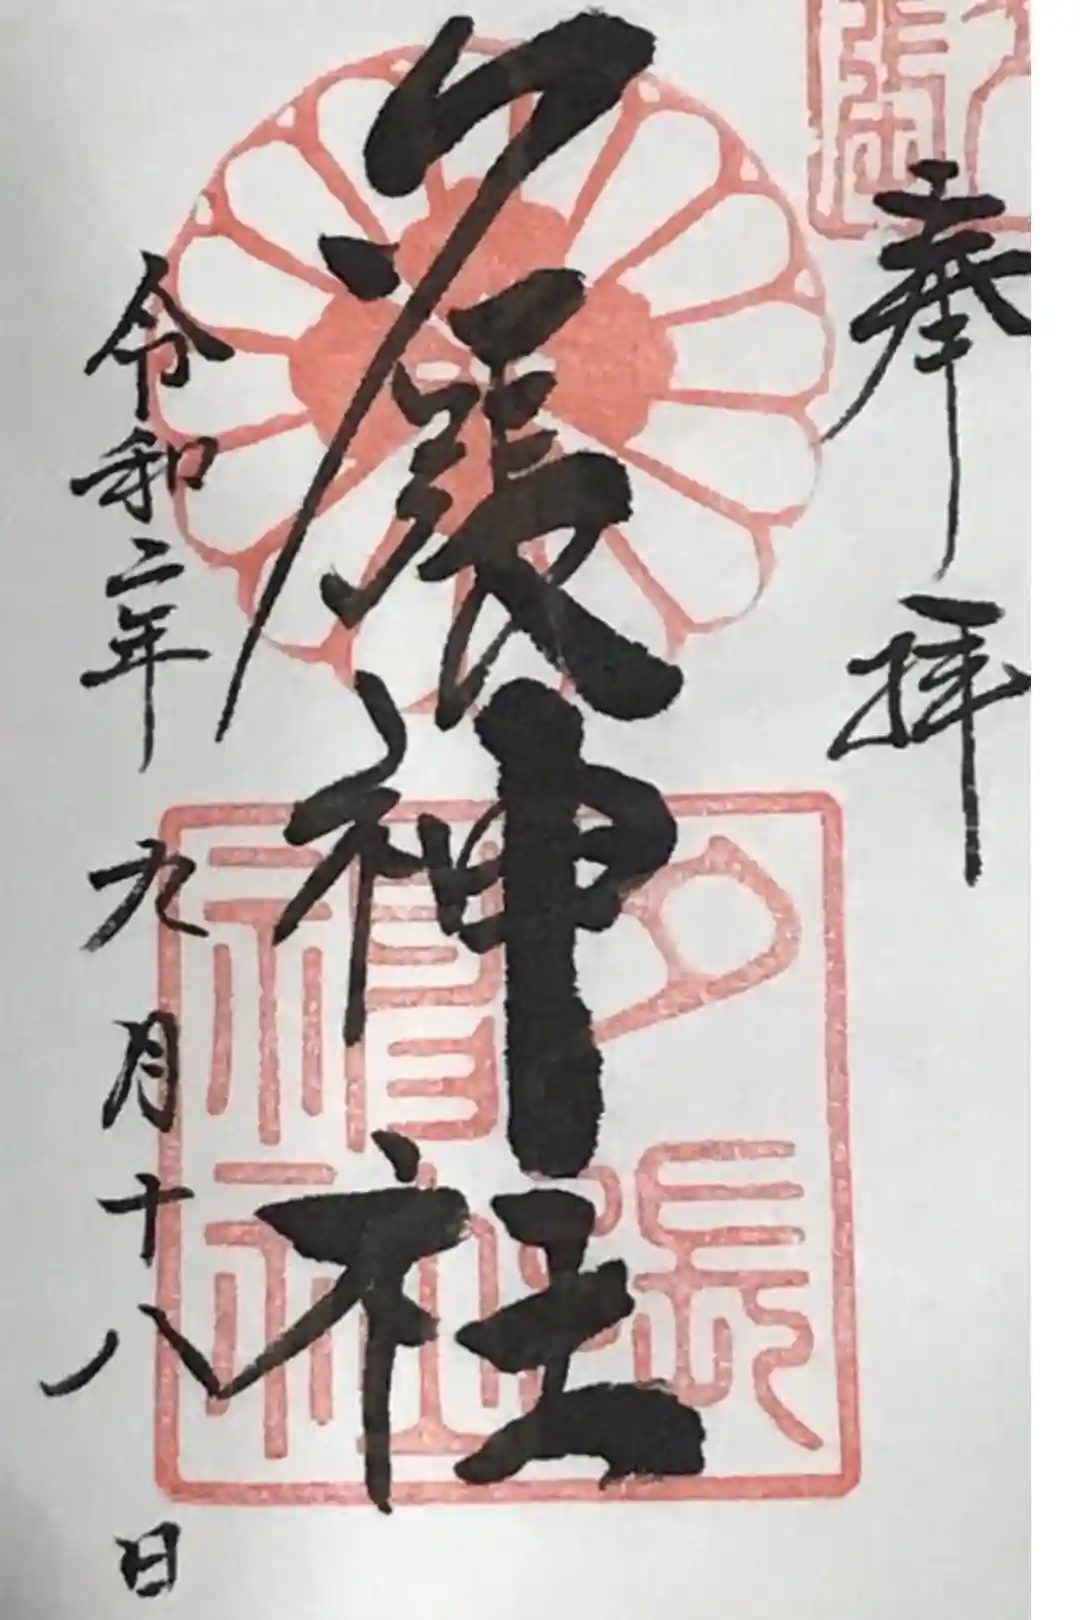 奉拝
夕張神社
令和二年 九月十八日
夕張
神社